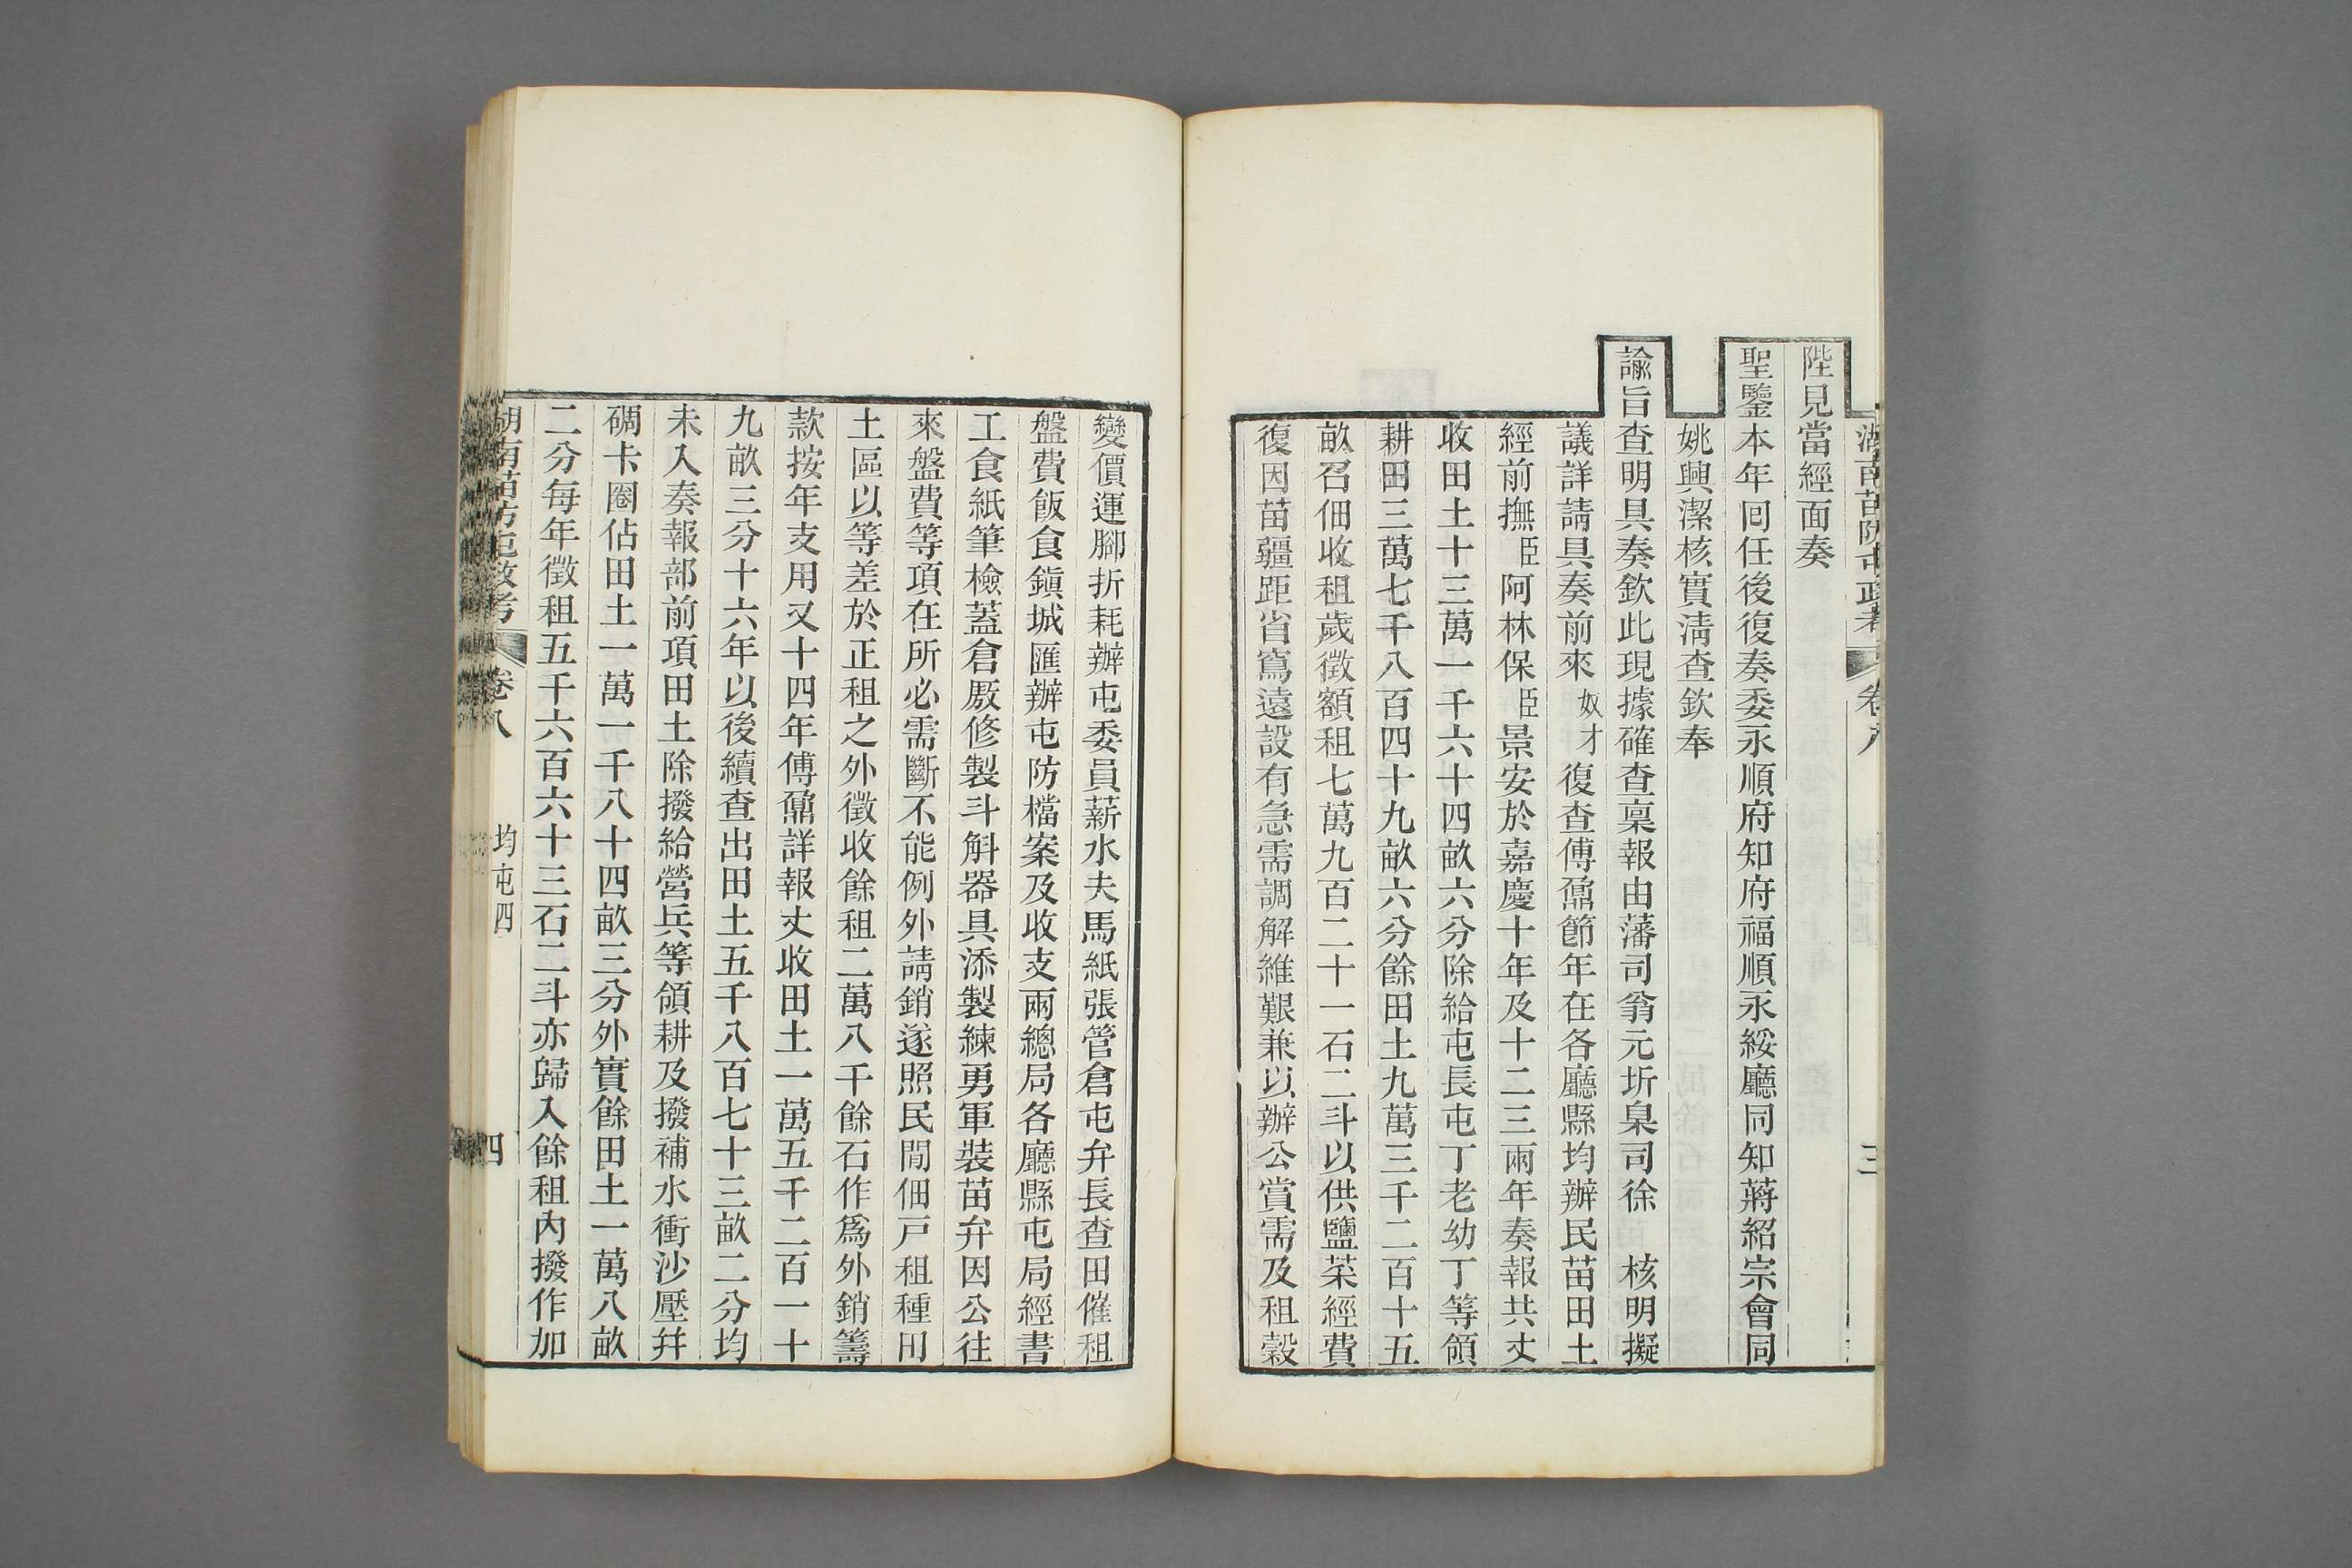 湖南苗防屯政考
卷八
三
陛見當經面奏
聖鑒本年回任後復奏委永順府知府福順永綏廳同知蔣紹宗會同
姚興潔核實清查欽奉
諭旨查明具奏欽此現據確查稟報由藩司翁元圻臬司徐 核明擬
議詳請具奏前來奴才復查傅鼐節年在各廳縣均辦民苗田土
經前撫臣阿林保臣景安於嘉慶十年及十二三兩年奏報共丈
收田土十三萬一千六十四畝六分除給屯長屯丁老幼丁等領
耕田三萬七千八百四十九畝六分餘田土九萬三千二百十五
畝召佃收租歲徵額租七萬九百二十一石二斗以供鹽菜經費
復因苗疆距省窵遠設有急需調解維艱兼以辦公賞需及租穀
變價運腳折耗辦屯委員薪水夫馬紙張管倉屯弁長查田催租
盤費飯食鎮城匯辦屯防檔案及收支兩總局各廳縣屯局經書
工食紙筆檢蓋倉厫修製斗斛器具添製練勇軍裝苗弁因公往
來盤費等項在所必需斷不能例外請銷遂照民間佃戶租種田
土區以等差於正租之外徵收餘租二萬八千餘石作爲外銷籌
款按年支用又十四年傅鼐詳報丈收田土一萬五千二百一十
九畝三分十六年以後續查出田土五千八百七十三畝二分均
未入奏報部前項田土除撥給營兵等領耕及撥補水衝沙壓幷
碉卡圈佔田土一萬一千八十四畝三分外實餘田土一萬八畝
二分每年徵租五千六百六十三石二斗亦歸入餘租內撥作加
湖南苗防屯政考
卷八
均屯四
四